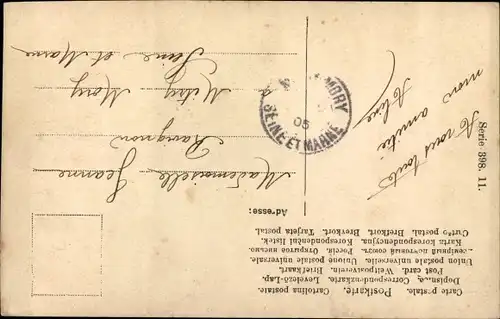 Carte postale. Postkarte. Cartolina postale.
Dopisnice. Correspondenzkarte. Levelező-Lap.
Post card. Weltpostverein. Briefkaart.
Union postale universelle Unione postale universale.
Karta korespondencyjna. Korespondenční listek.
Cart° postal. Brefkort. Brevkort. Tarjeta postal.
Adresse:
Mademoiselle Jeanne
Rongnon
à Mitry Mory
Seine et Marne
MORY
05
SEINE ET MARNE
A vous toute
mon amitié
Aline
Serie 398. 11.